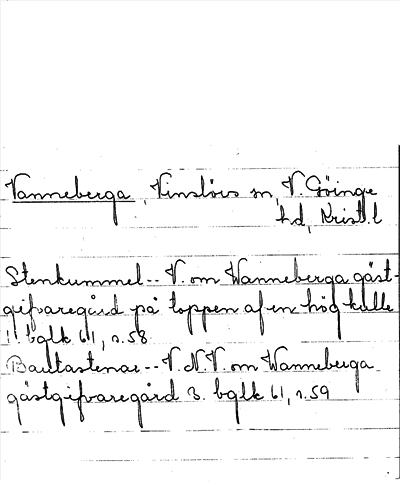 Vanneberga, Vinslövs sn, V. Göinge
hd, Krist. l
Stenkummel -- V. om Wanneberga gäst-
gifvaregård på toppen af en hög kulle
1! bglk 61, s. 58
Bautastenar -- V.N.V. om Wanneberga
gästgifvaregård 3. bglk 61, s. 59